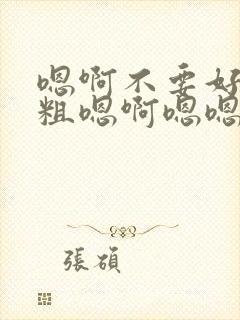 嗯啊不要好
粗嗯啊嗯嗯
張碩